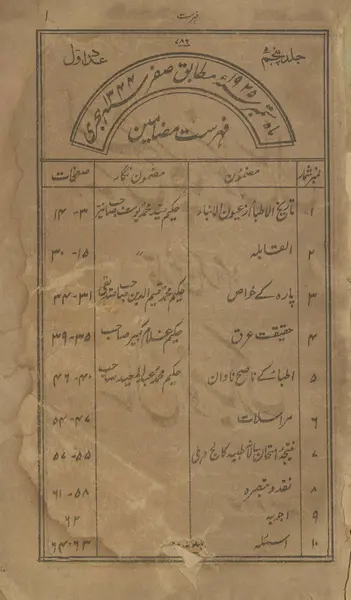 فہرست
۱
۷۸۶
جلد پنجم
عدد اول
ماہ ستمبر ۱۹۲۵ء مطابق صفر ۱۳۴۴ ہجری
فہرست مضامین
نمبر شمار مضمون مضمون نگار صفحات
۱ تاریخ الاطبا از عیون الانباء حکیم سید محمد یوسف صاحب ۳-۱۴
۲ القابلہ " ۱۵-۳۰
۳ پارہ کے خواص حکیم محمد قسیم الدین صاحب صدیقی ۳۱-۳۴
۴ حقیقت عرق حکیم غلام کبیر صاحب ۳۵-۳۹
۵ اطبا کے ناصح نادان حکیم محمد عبدالمجید صاحب ۴۰-۴۶
۶ مراسلات ۴۷-۵۴
۷ نتیجہ امتحان کالج دہلی ۵۵-۵۷
۸ نقد و تبصرہ ۵۸-۶۱
۹ اجوبہ ۶۲
۱۰ اسئلہ ۶۳-۶۴